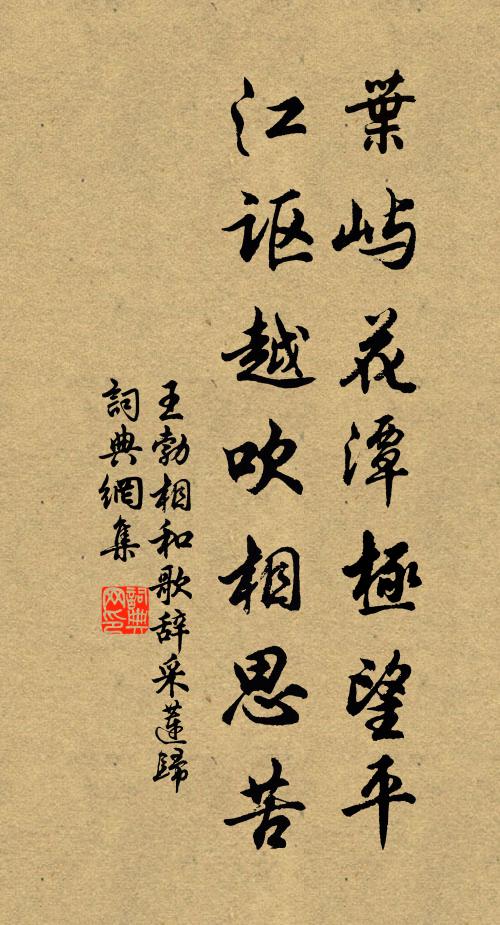 葉屿花潭極望平
江讴越吹相思苦
王勃相和歌辞采蓮歸
詞典網集
詞典网印